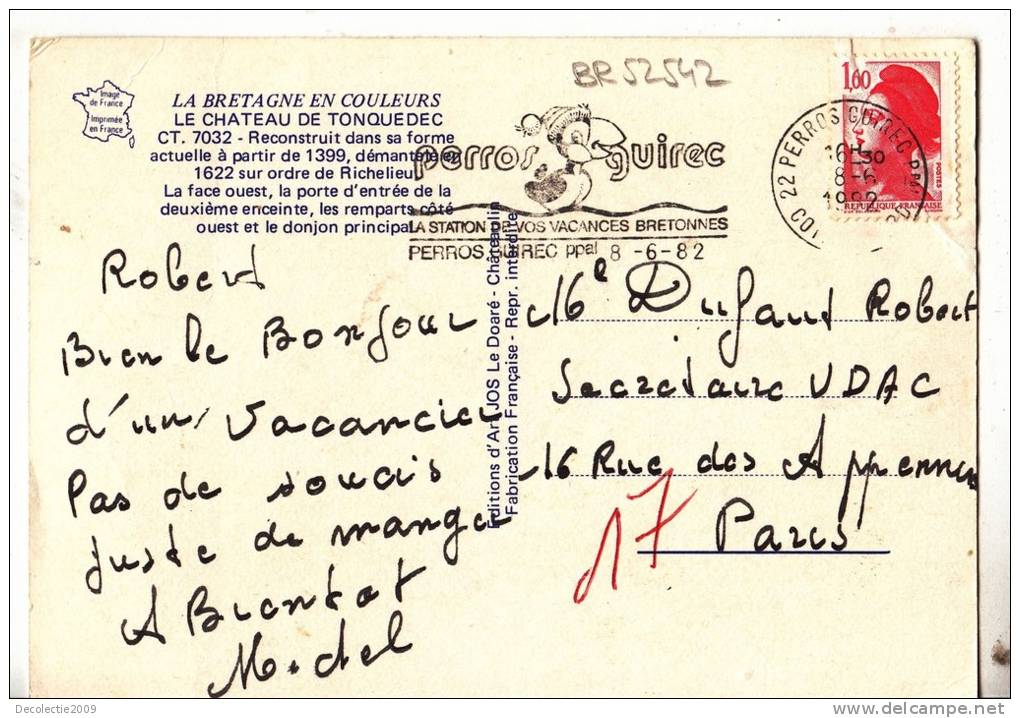 BR 52542
Image
de France
Imprimée
en France
LA BRETAGNE EN COULEURS
LE CHATEAU DE TONQUEDEC
CT. 7032 - Reconstruit dans sa forme
actuelle à partir de 1399, démantelé en
1622 sur ordre de Richelieu
La face ouest, la porte d'entrée de la
deuxième enceinte, les remparts côté
ouest et le donjon principal
perros guirec
LA STATION DE VOS VACANCES BRETONNES
PERROS GUIREC ppal 8 -6-82
22 PERROS GUIREC PPAL
16H30
8-6
1982
1,60
POSTES
REPUBLIQUE FRANCAISE
Editions d'Art JOS Le Doaré - Châteaulin
Fabrication Française - Repr. interdite
Robert
Bien le Bonjour
d'un vacancier
Pas de soucis
juste de manger
A Bientot
Michel
Me Dufaut Robert
Secretaire UDAC
16 Rue des Appennins
Paris
17
Decolectie2009
www.delcampe.net